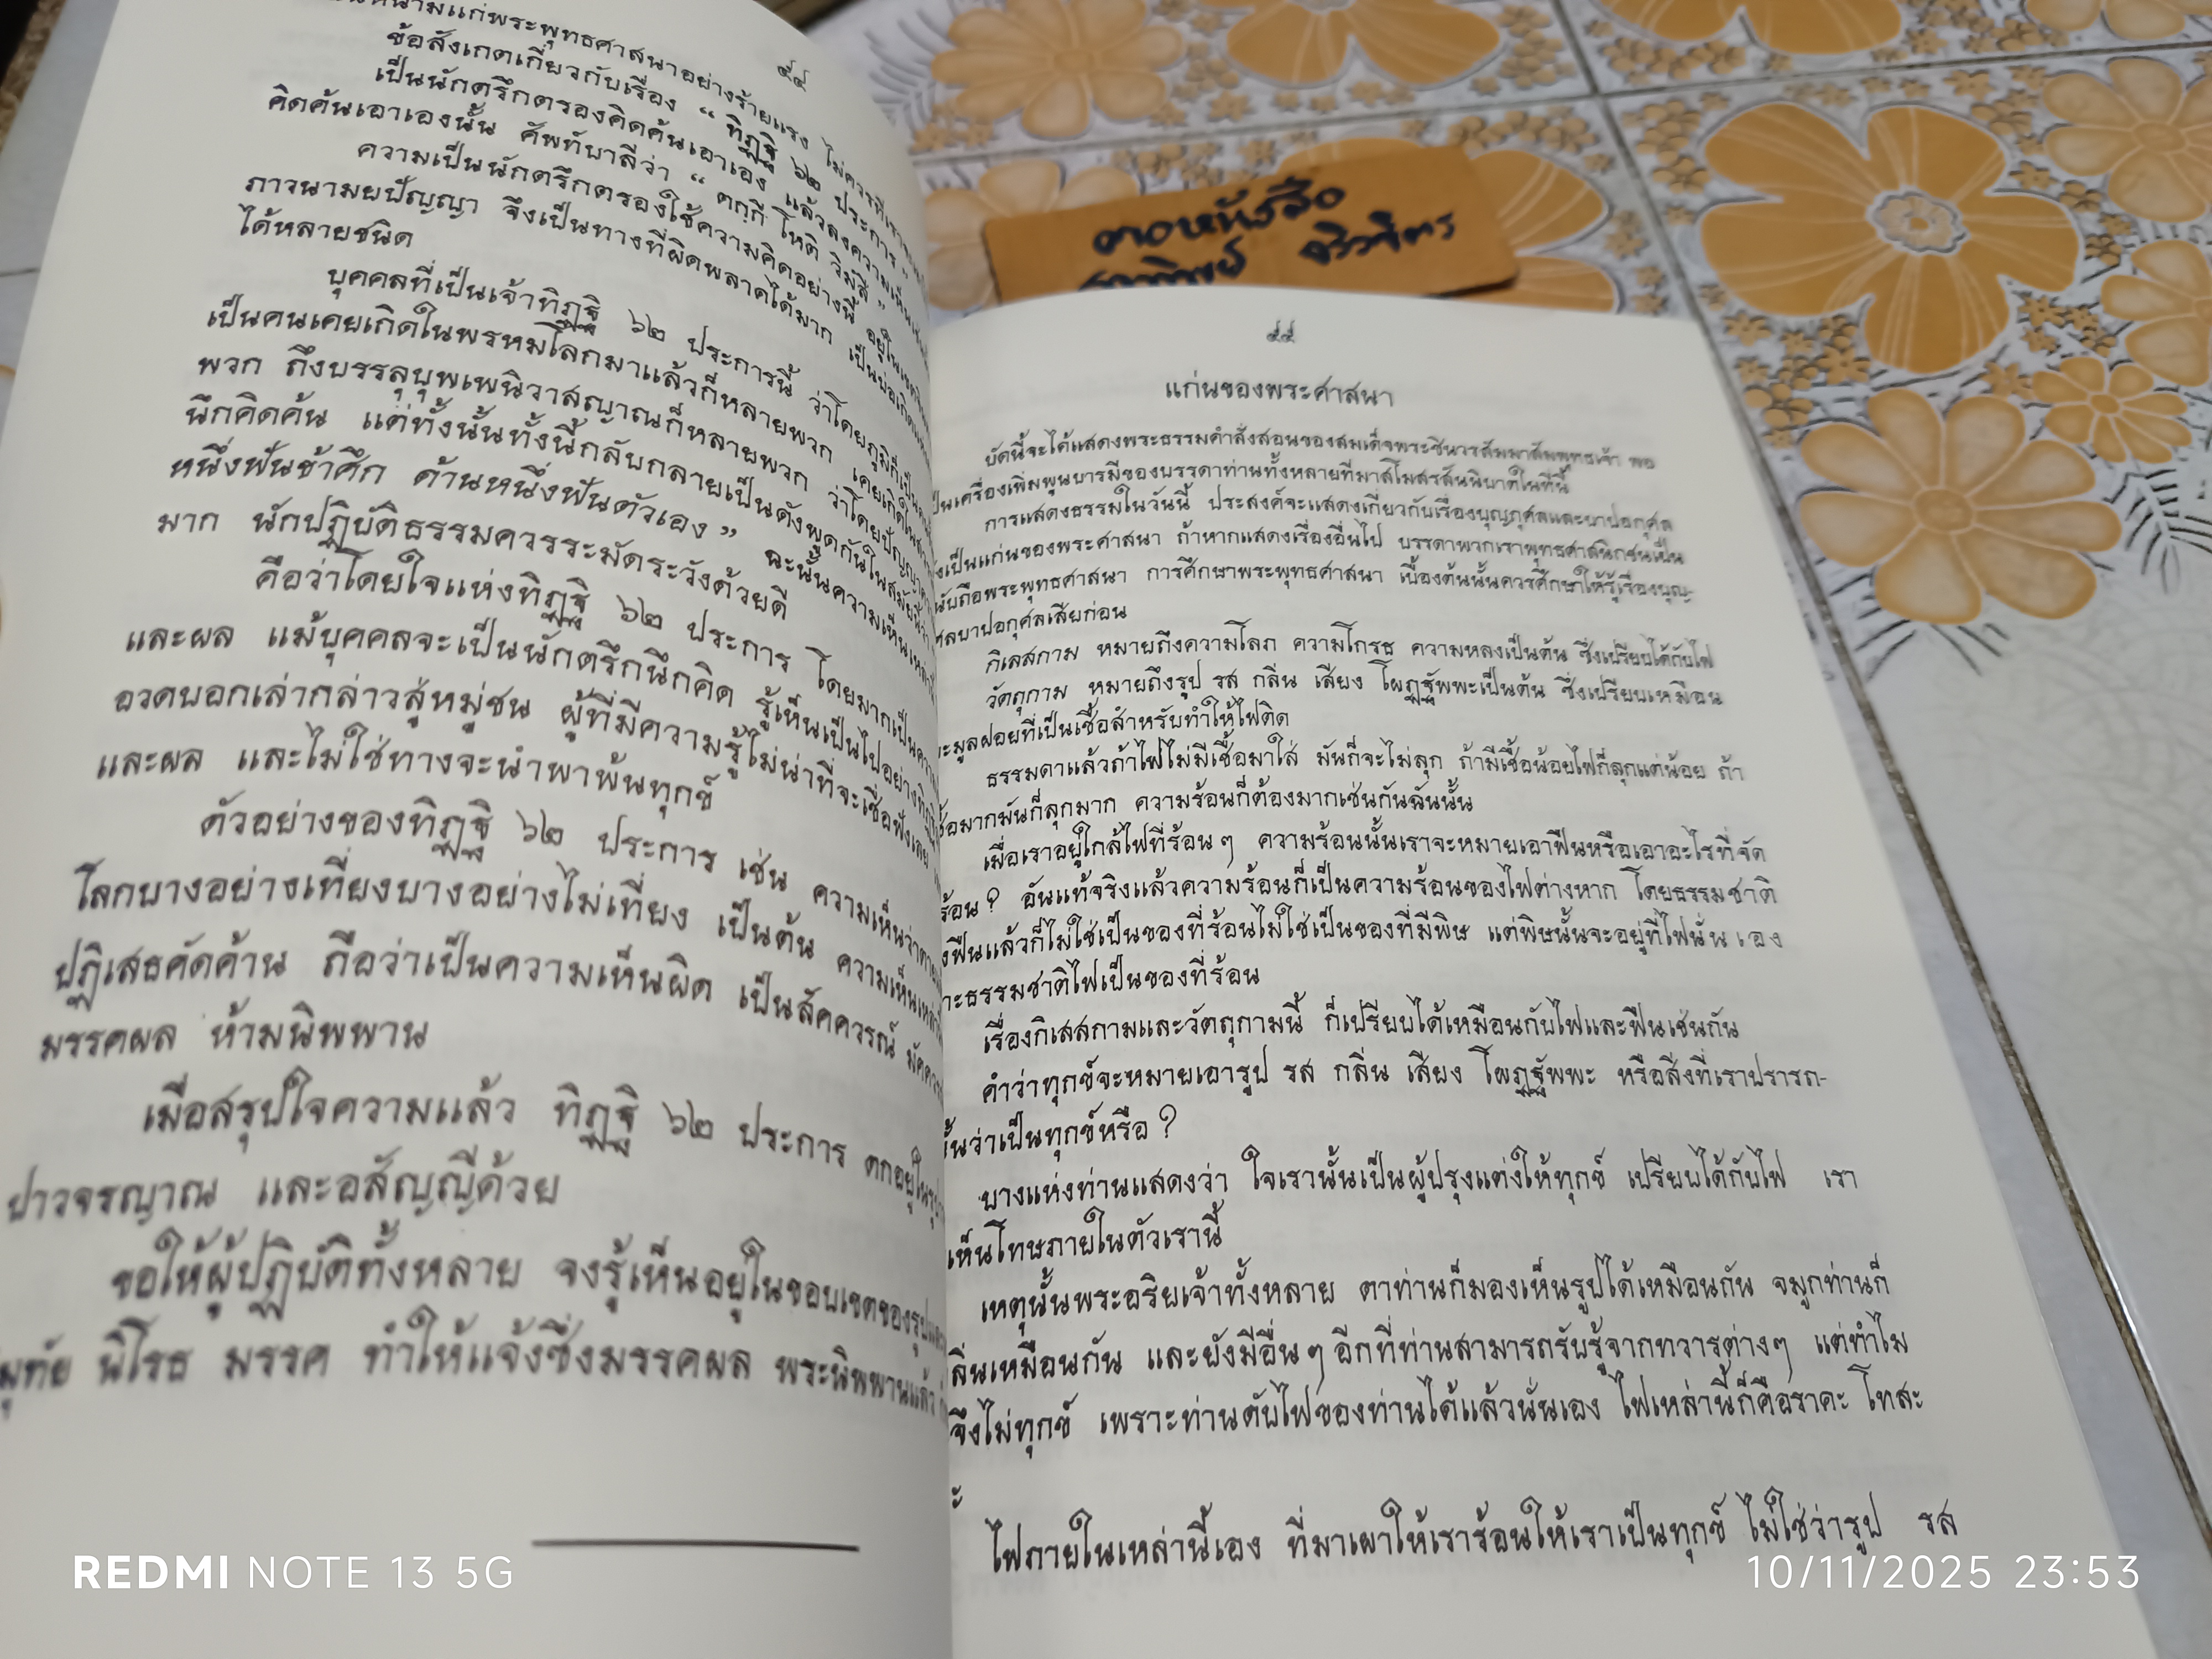 ๕๔
เป็นหนามแก่พระพุทธศาสนาอย่างร้ายแรง ไม่ควรที่เรา
ข้อสังเกตเกี่ยวกับเรื่อง “ ทิฏฐิ ๖๒ ประการ ”
เป็นนักตรึกตรองคิดค้นเอาเอง แล้วลงความเห็น
คิดค้นเอาเองนั้น ศัพท์บาลีว่า “ ตกฺกี โหติ วิมํสี ”
ความเป็นนักตรึกตรองใช้ความคิดอย่างนี้ อยู่ในเขต
ภาวนามยปัญญา จึงเป็นทางที่ผิดพลาดได้มาก เป็นบ่อเกิด
ได้หลายชนิด
บุคคลที่เป็นเจ้าทิฏฐิ ๖๒ ประการนี้ ว่าโดยภูมิก็เป็น
เป็นคนเคยเกิดในพรหมโลกมาแล้วก็หลายพวก เคยเกิดใน
พวก ถึงบรรลุบุพเพนิวาสญาณก็หลายพวก ว่าโดยปัญญา
นึกคิดค้น แต่ทั้งนั้นทั้งนี้กลับกลายเป็นดังพูดกันในสมัยนี้ว่า
หนึ่งฟันข้าศึก ด้านหนึ่งฟันตัวเอง ” ฉะนั้นความเห็นเหล่านี้
มาก นักปฏิบัติธรรมควรระมัดระวังด้วยดี
คือว่าโดยใจแห่งทิฏฐิ ๖๒ ประการ โดยมากเป็นความ
และผล แม้บุคคลจะเป็นนักตรึกนึกคิด รู้เห็นเป็นไปอย่าง
อวดบอกเล่ากล่าวสู่หมู่ชน ผู้ที่มีความรู้ไม่น่าที่จะเชื่อฟังเลย
และผล และไม่ใช่ทางจะนำพาพ้นทุกข์
ตัวอย่างของทิฏฐิ ๖๒ ประการ เช่น ความเห็นว่าตาย
โลกบางอย่างเที่ยงบางอย่างไม่เที่ยง เป็นต้น ความเห็นเหล่านี้
ปฏิเสธคัดค้าน ถือว่าเป็นความเห็นผิด เป็นสัคควรณ์ มัคควรณ์
มรรคผล ห้ามนิพพาน
เมื่อสรุปใจความแล้ว ทิฏฐิ ๖๒ ประการ ตกอยู่ในรูป
ปาวจรญาณ และอสัญญีด้วย
ขอให้ผู้ปฏิบัติทั้งหลาย จงรู้เห็นอยู่ในขอบเขตของรูป
มุทัย นิโรธ มรรค ทำให้แจ้งซึ่งมรรคผล พระนิพพานแล้ว
๕๕
แก่นของพระศาสนา
บัดนี้จะได้แสดงพระธรรมคำสั่งสอนของสมเด็จพระชินวรสัมมาสัมพุทธเจ้า พอ
เป็นเครื่องเพิ่มพูนบารมีของบรรดาท่านทั้งหลายที่มาสโมสรสันนิบาตในที่นี้
การแสดงธรรมในวันนี้ ประสงค์จะแสดงเกี่ยวกับเรื่องบุญกุศลและบาปอกุศล
งเป็นแก่นของพระศาสนา ถ้าหากแสดงเรื่องอื่นไป บรรดาพวกเราพุทธศาสนิกชนเป็น
นับถือพระพุทธศาสนา การศึกษาพระพุทธศาสนา เบื้องต้นนั้นควรศึกษาให้รู้เรื่องบุญ-
ศลบาปอกุศลเสียก่อน
กิเลสกาม หมายถึงความโลภ ความโกรธ ความหลงเป็นต้น ซึ่งเปรียบได้กับไฟ
วัตถุกาม หมายถึงรูป รส กลิ่น เสียง โผฏฐัพพะเป็นต้น ซึ่งเปรียบเหมือน
ะมูลฝอยที่เป็นเชื้อสำหรับทำให้ไฟติด
ธรรมดาแล้วถ้าไฟไม่มีเชื้อมาใส่ มันก็จะไม่ลุก ถ้ามีเชื้อน้อยไฟก็ลุกแต่น้อย ถ้า
ชื้อมากมันก็ลุกมาก ความร้อนก็ต้องมากเช่นกันฉันนั้น
เมื่อเราอยู่ใกล้ไฟที่ร้อน ๆ ความร้อนนั้นเราจะหมายเอาฟืนหรือเอาอะไรที่จัด
ร้อน ? อันแท้จริงแล้วความร้อนก็เป็นความร้อนของไฟต่างหาก โดยธรรมชาติ
งฟืนแล้วก็ไม่ใช่เป็นของที่ร้อนไม่ใช่เป็นของที่มีพิษ แต่พิษนั้นจะอยู่ที่ไฟนั่นเอง
าะธรรมชาติไฟเป็นของที่ร้อน
เรื่องกิเลสกามและวัตถุกามนี้ ก็เปรียบได้เหมือนกับไฟและฟืนเช่นกัน
คำว่าทุกข์จะหมายเอารูป รส กลิ่น เสียง โผฏฐัพพะ หรือสิ่งที่เราปรารถ-
นั้นว่าเป็นทุกข์หรือ ?
บางแห่งท่านแสดงว่า ใจเรานั้นเป็นผู้ปรุงแต่งให้ทุกข์ เปรียบได้กับไฟ เรา
เห็นโทษภายในตัวเรานี้
เหตุนั้นพระอริยเจ้าทั้งหลาย ตาท่านก็มองเห็นรูปได้เหมือนกัน จมูกท่านก็
ลิ่นเหมือนกัน และยังมีอื่น ๆ อีกที่ท่านสามารถรับรู้จากทวารต่างๆ แต่ทำไม
จึงไม่ทุกข์ เพราะท่านดับไฟของท่านได้แล้วนั่นเอง ไฟเหล่านี้ก็คือราคะ โทสะ
ะ
ไฟภายในเหล่านี้เอง ที่มาเผาให้เราร้อนให้เราเป็นทุกข์ ไม่ใช่ว่ารูป รส
REDMI NOTE 13 5G
10/11/2025 23:53